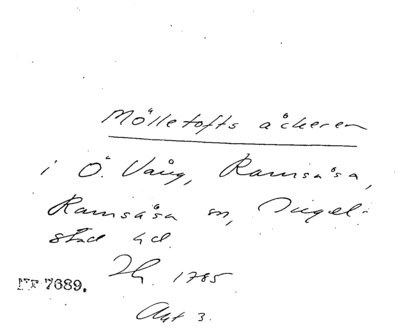 Mölletofts åckeren
i Ö. Vång, Ramsåsa,
Ramsåsa sn, Ingel-
stad hd.
1785
NF 7689.
Akt 3.